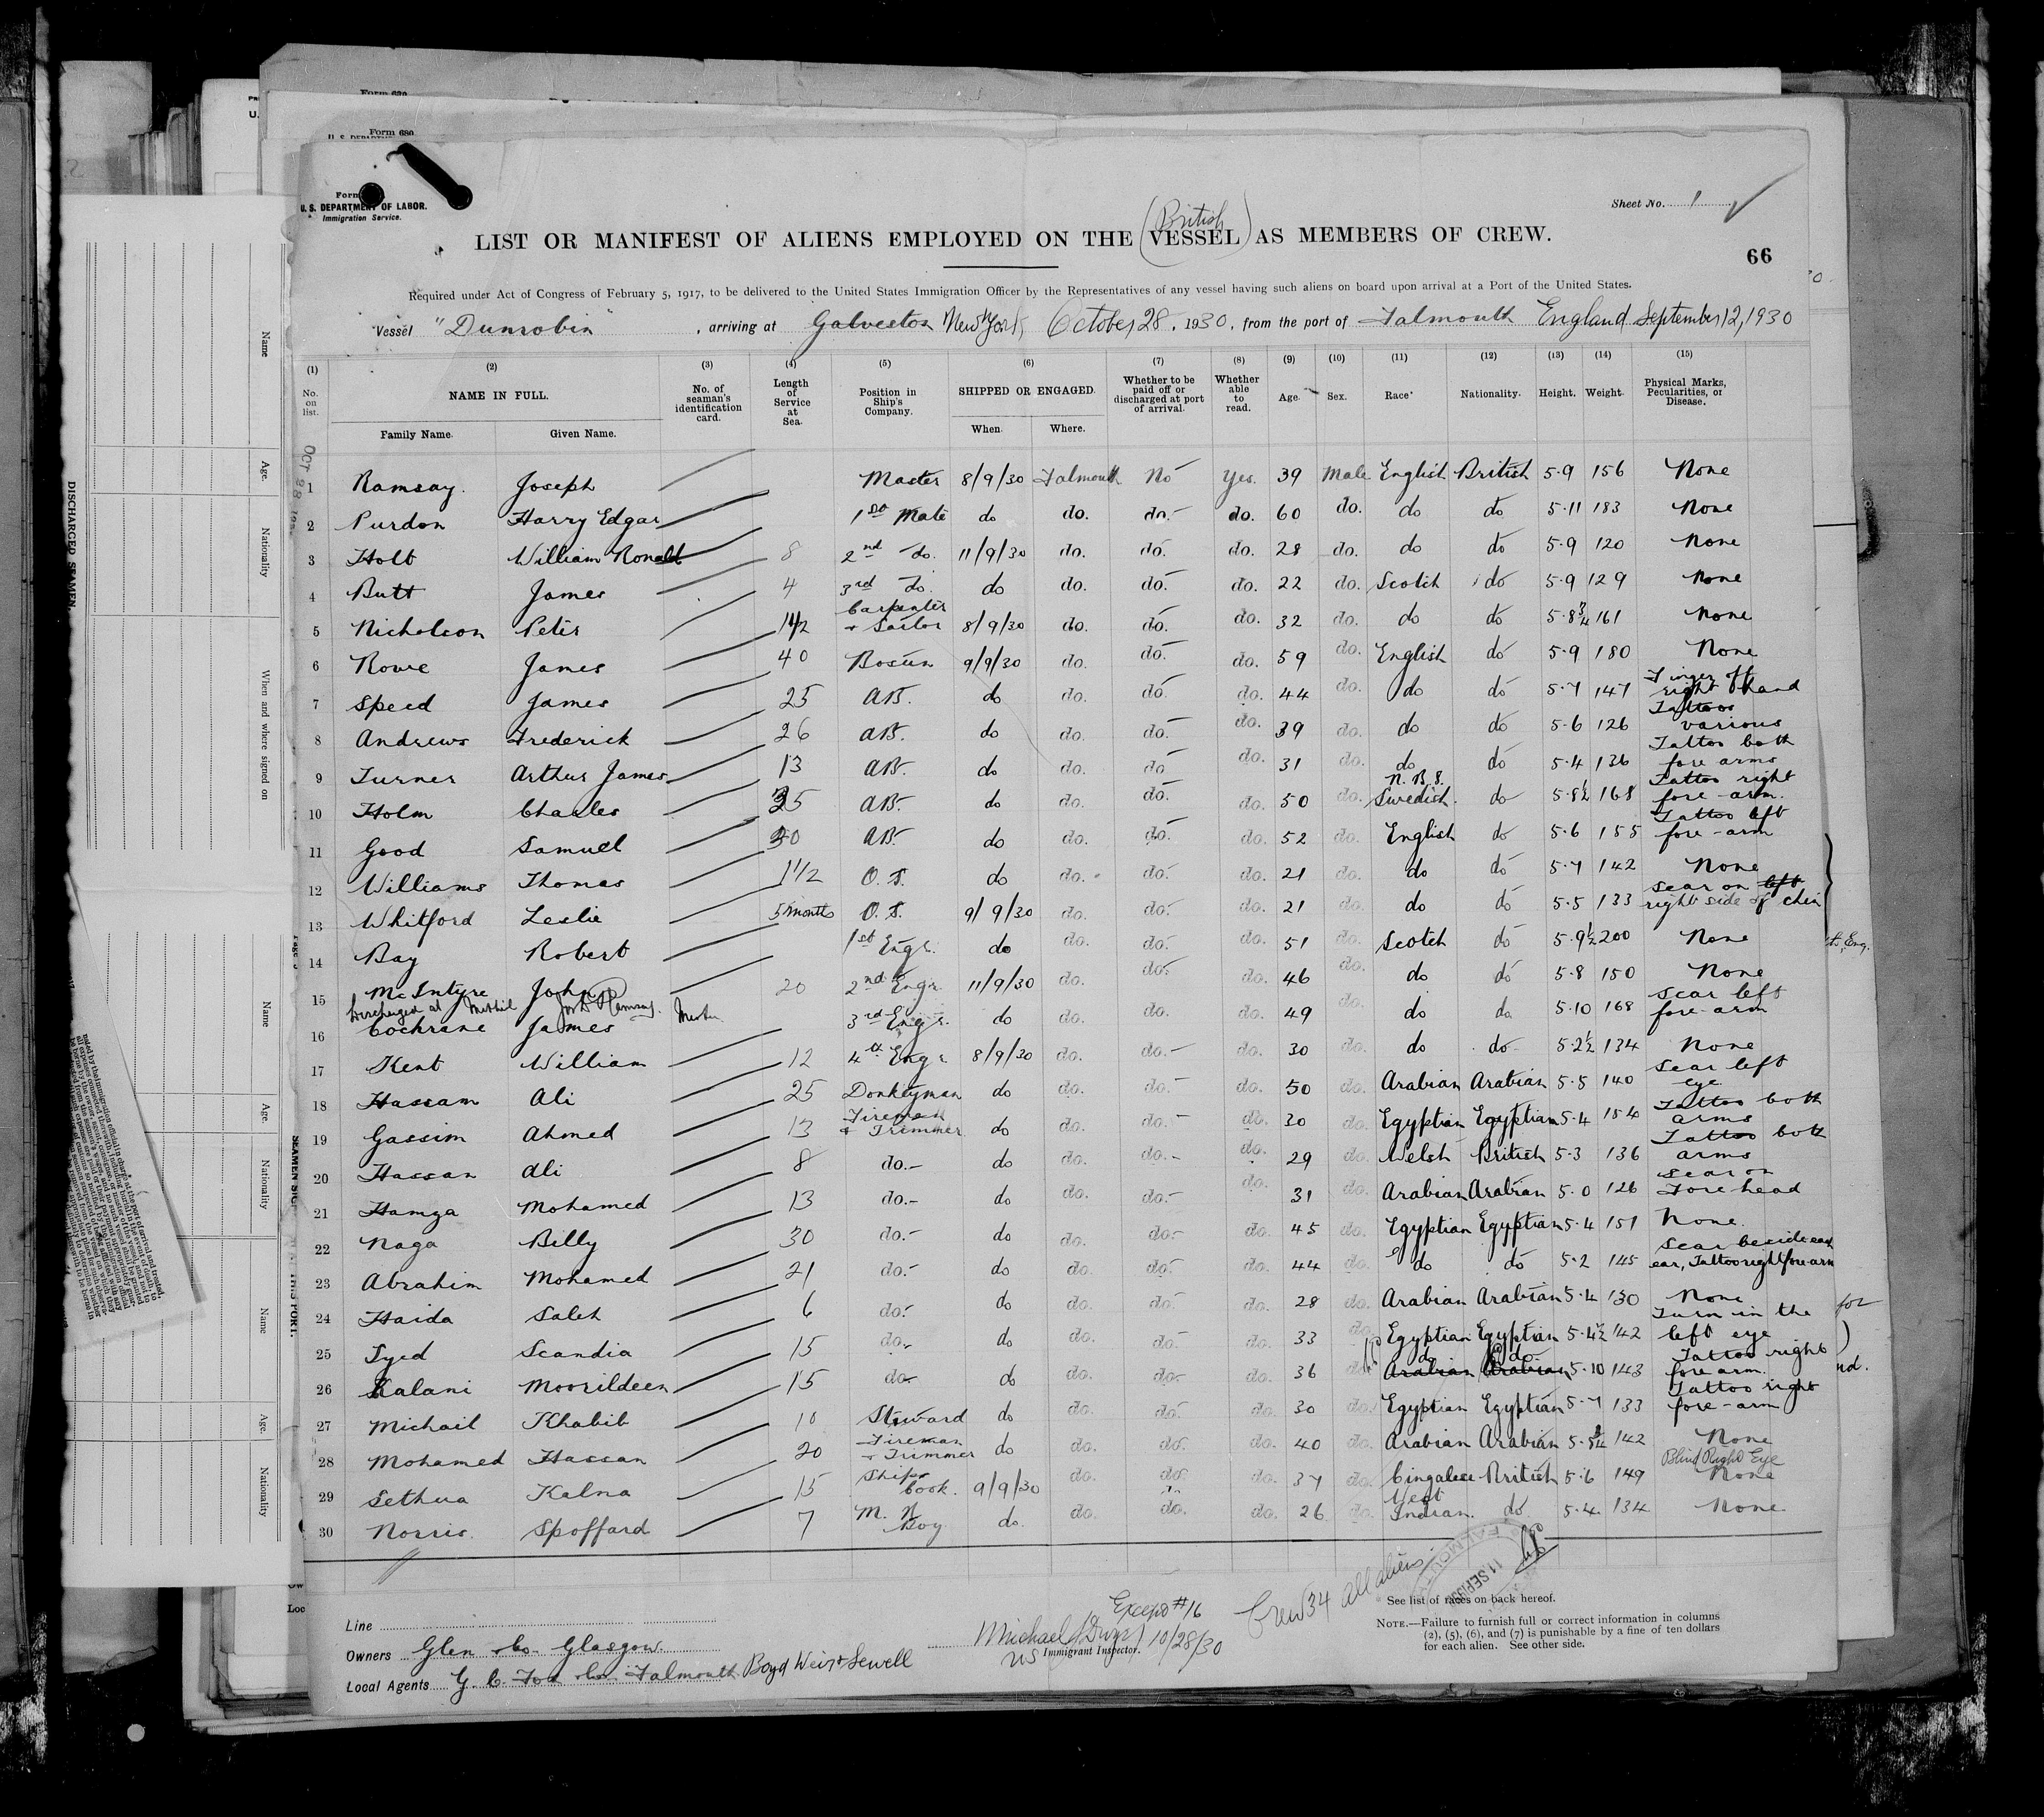 Form 680
U. S. DEPARTMENT OF LABOR.
Immigration Service.
Sheet No. 1
(British)
LIST OR MANIFEST OF ALIENS EMPLOYED ON THE VESSEL AS MEMBERS OF CREW.
66
Required under Act of Congress of February 5, 1917, to be delivered to the United States Immigration Officer by the Representatives of any vessel having such aliens on board upon arrival at a Port of the United States.
Vessel "Dunrobin", arriving at Galveston New York October 28, 1930, from the port of Falmouth England September 12, 1930
(1) (2) (3) (4) (5) (6) (7) (8) (9) (10) (11) (12) (13) (14) (15)
No. on list. NAME IN FULL. Family Name. Given Name. No. of seaman's identification card. Length of Service at Sea. Position in Ship's Company. SHIPPED OR ENGAGED. When. Where. Whether to be paid off or discharged at port of arrival. Whether able to read. Age. Sex. Race* Nationality. Height. Weight. Physical Marks, Pecularities, or Disease.
1 Ramsay Joseph Master 8/9/30 Falmouth No Yes. 39 Male English British 5-9 156 None
2 Purdon Harry Edgar 1st Mate do do. do. do. 60 do. do do 5-11 183 None
3 Holt William Ronald 8 2nd do. 11/9/30 do. do. do. 28 do. do do 5-9 120 None
4 Butt James 4 3rd do. do do. do. do. 22 do. Scotch do 5-9 129 None
5 Nicholson Peter Carpenter + Sailor 8/9/30 do. do. do. 32 do. do do 5-8¾ 161 None
6 Rowe James 40 Bosun 9/9/30 do. do. do. 59 do. English do 5-9 180 None
7 Speed James 25 AB. do do. do. do. 44 do. do do 5-7 147 Finger off right hand
8 Andrews Frederick 26 AB. do do. do. do. 39 do. do do 5-6 126 Tattoos various
9 Turner Arthur James 13 AB. do do. do do. 31 do. do do 5-4 136 Tattoo both fore arms
10 Holm Charles 35 AB. do do. do. do. 50 do. N.B.S. Swedish do 5-8½ 168 Tattoo right fore-arm.
11 Good Samuel 30 AB. do do. do. do. 52 do. English do 5-6 155 Tattoo left fore-arm
12 Williams Thomas 1½ O.S. do do. do. do. 21 do. do do 5-7 142 None
13 Whitford Leslie 5 months O.S. 9/9/30 do. do. do. 21 do. do do 5-5 133 Scar on left right side of chin
14 Bay Robert 1st Engr. do do. do. do. 51 do. Scotch do 5-9½ 200 None
15 McIntyre John 20 2nd Engr. 11/9/30 do. do. do. 46 do. do do 5-8 150 None
Discharged at Methil Jos Ramsay. Master
16 Cochrane James 3rd Engr. do do. do. do. 49 do. do do 5-10 168 Scar left fore-arm
17 Kent William 12 4th Engr 8/9/30 do. do. do. 30 do. do do 5-2½ 134 None
18 Hassam Ali 25 Donkeyman do do. do. do. 50 do. Arabian Arabian 5-5 140 Scar left eye
19 Gassim Ahmed 13 Fireman + Trimmer do do. do. do. 30 do. Egyptian Egyptian 5-4 154 Tattoo both arms
20 Hassan Ali 8 do.- do do. do. do. 29 do. Welsh British 5-3 136 Tattoo both arms
21 Hamza Mohamed 13 do.- do do. do. do. 31 do. Arabian Arabian 5-0 126 Scar on Forehead
22 Naga Billy 30 do.- do do. do. do. 45 do. Egyptian Egyptian 5-4 151 None.
23 Abrahim Mohamed 21 do. do do. do. do. 44 do. do do 5-2 145 Scar beside each ear, Tattoo right fore-arm
24 Haida Saleh 6 do. do do. do. do. 28 do. Arabian Arabian 5-4 130 None
25 Syed Scandia 15 do. do do. do. do. 33 do. Egyptian Egyptian 5-4½ 142 Turn in the left eye
26 Kalani Moorildeen 15 do do do. do. do. 36 do. do do Arabian Arabian 5-10 143 Tattoo right fore arm.
27 Michail Khabib 10 Steward do do. do. do. 30 do. Egyptian Egyptian 5-7 133 Tattoo right fore-arm
28 Mohamed Hassan 20 Fireman + Trimmer do do. do. do. 40 do. Arabian Arabian 142 None
Blind Right Eye
29 Sethua Kalna 15 Ships Cook. 9/9/30 do. do. do. 37 do. Cingalese British 5-6 149 None
30 Norris Spofford 7 M. R Boy do. do. do. do. 26 do. West Indian. do 5-4 134 None
Line
Owners Glen & Co. Glasgow.
Local Agents G. C. Fox & Co. Falmouth Boyd Weir & Sewell
Except #16
Michael Dwyer 10/28/30
US Immigrant Inspector.
Crew 34 all aliens
FALMOUTH
11 SEP 1930
See list of races on back hereof.
NOTE.—Failure to furnish full or correct information in columns (2), (5), (6), and (7) is punishable by a fine of ten dollars for each alien. See other side.
DISCHARGED SEAMEN
Name
Age.
Nationality
When and where signed on
Name
Age.
Nationality
Name
Age.
Nationality